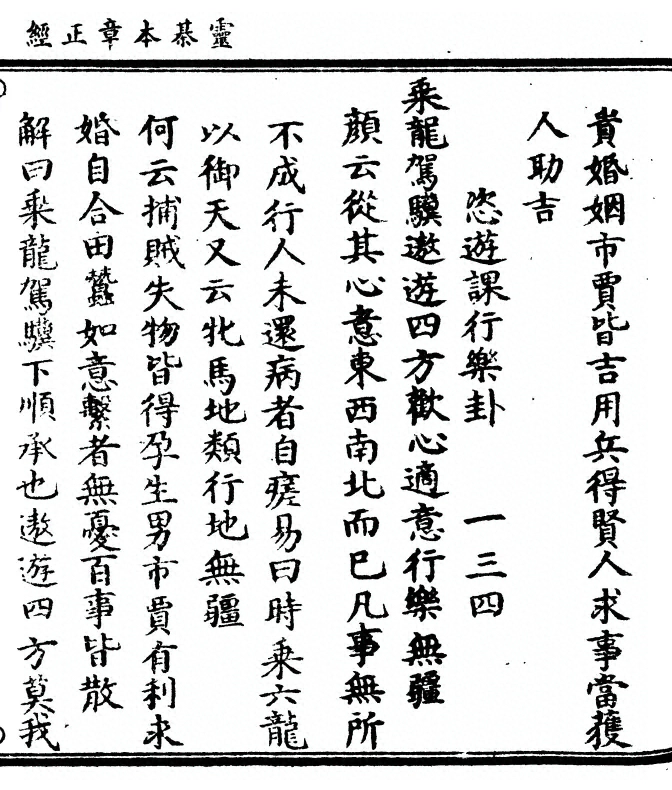 靈棊本章正經
貴婚姻市賈皆吉用兵得賢人求事當獲
人助吉
恣遊課行樂卦　一三四
乘龍駕驥遨遊四方歡心適意行樂無疆
顔云從其心意東西南北而已凡事無所
不成行人未還病者自瘥易曰時乘六龍
以御天又云牝馬地類行地無疆
何云捕賊失物皆得孕生男市賈有利求
婚自合田蠶如意繫者無憂百事皆散
解曰乘龍駕驥下順承也遨遊四方莫我